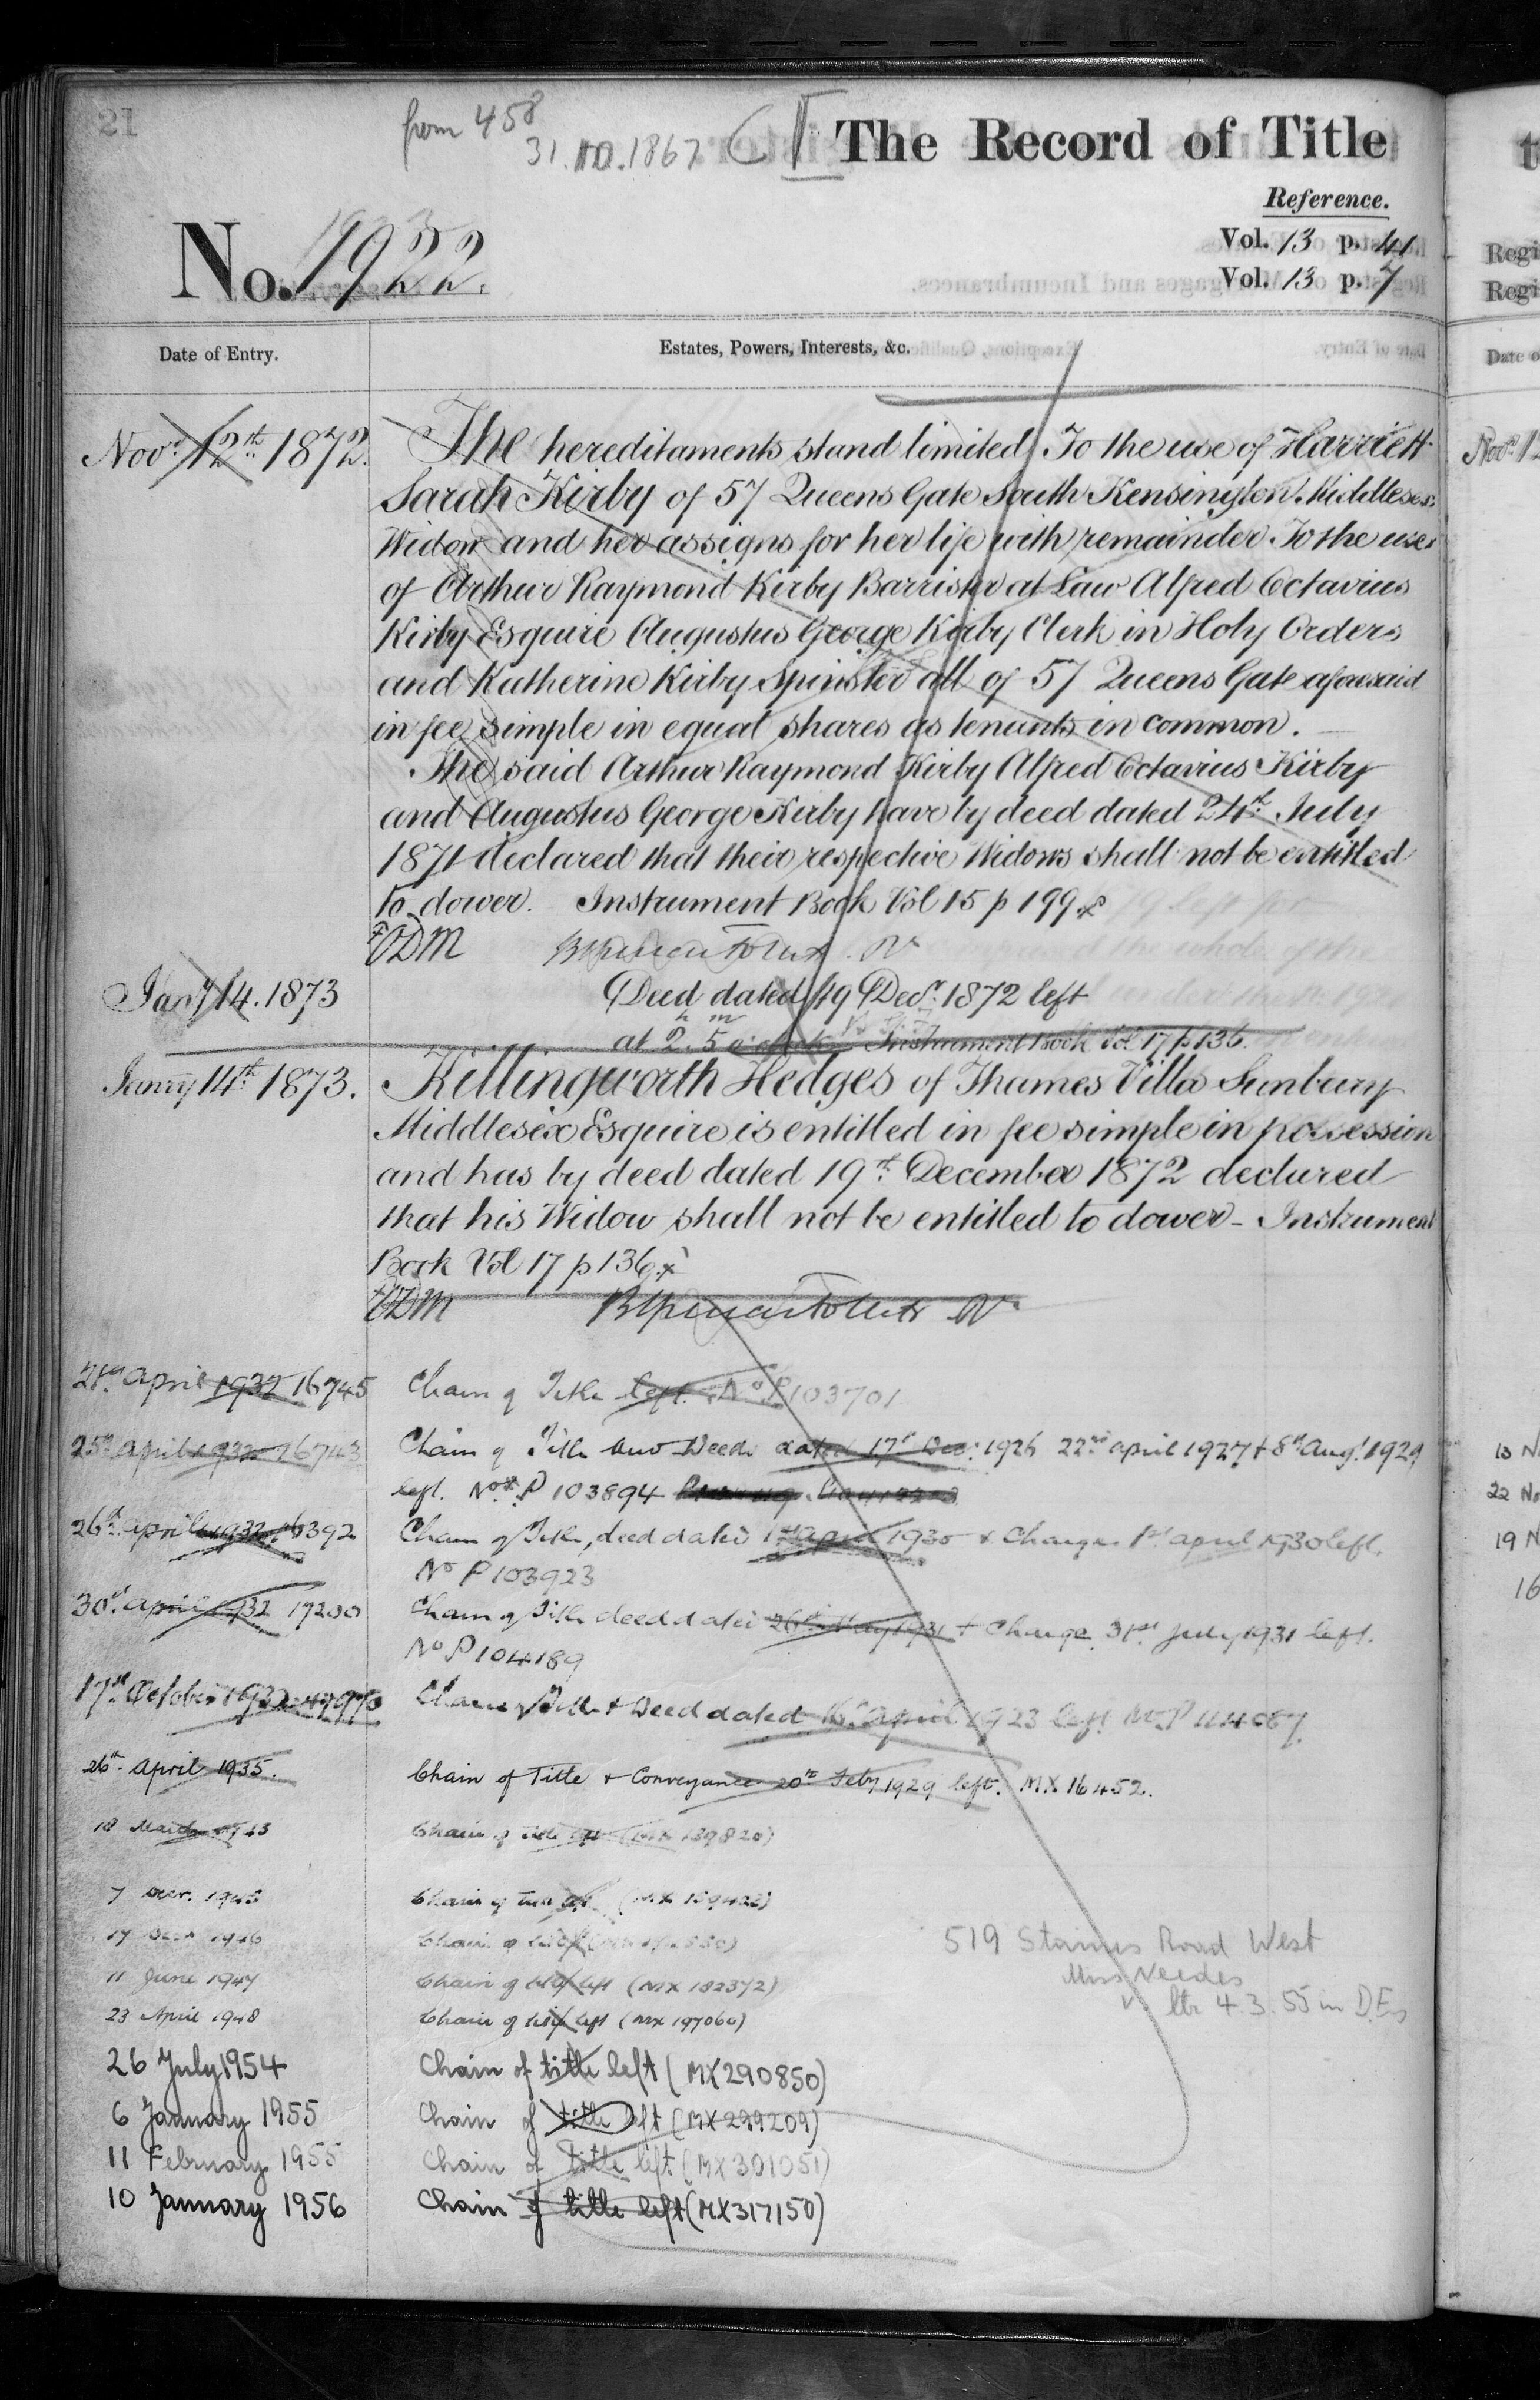 21
from 458
31.10.1867
The Record of Title
Reference.
Vol. 13 p. 41
Vol. 13 p. 7
No. 1922.
Date of Entry.
Estates, Powers, Interests, &c.
Novr. 12th 1872.
The hereditaments stand limited To the use of Harriett
Sarah Kirby of 57 Queens Gate South Kensington Middlesex
Widow and her assigns for her life with remainder To the use
of Arthur Raymond Kirby Barrister at Law Alfred Octavius
Kirby Esquire Augustus George Kirby Clerk in Holy Orders
and Katherine Kirby Spinster all of 57 Queens Gate aforesaid
in fee simple in equal shares as tenants in common.
The said Arthur Raymond Kirby Alfred Octavius Kirby
and Augustus George Kirby have by deed dated 24th July
1871 declared that their respective Widows shall not be entitled
to dower. Instrument Book Vol 15 p 199
Jany 14. 1873
Deed dated 19 Decr. 1872 left
at 2h 5m o'clock Instrument Book Vol 17 p 136.
Janry 14th 1873.
Killingworth Hedges of Thames Villa Sunbury
Middlesex Esquire is entitled in fee simple in possession
and has by deed dated 19th December 1872 declared
that his Widow shall not be entitled to dower - Instrument
Book Vol 17 p 136
21st April 1932 16745
Chain of Title left. No. P103701
25th April 1932 16743
Chain of Title and Deeds dated 17th Dec. 1926 22nd april 1927 & 8th Augt 1929
left. Nos. P 103894
26th april 1932 16392
Chain of Title, deed dated 1st april 1930 & Charge 1st april 1930 left.
No P103923
30th april 1932 17200
Chain of Title deed dated 26th May 1931 & Charge 31st July 1931 left.
No P104189
17th October 1932
Chain of Title & Deed dated 16th April 1923 left
26th April 1935.
Chain of Title & Conveyance 20th Feby 1929 left. MX 16452.
18 March
Chain of title left (MX 139820)
7 1945
Chain of title left
1946
Chain of title left
11 June 1947
Chain of title left (MX 182372)
23 April 1948
Chain of title left (MX 197060)
26 July 1954
Chain of title left (MX290850)
6 January 1955
Chain of title left (MX299209)
11 February 1955
Chain of title left (MX301051)
10 January 1956
Chain of title left (MX317150)
519 Staines Road West
Miss Needes
ltr 4.3.55 in D.E.